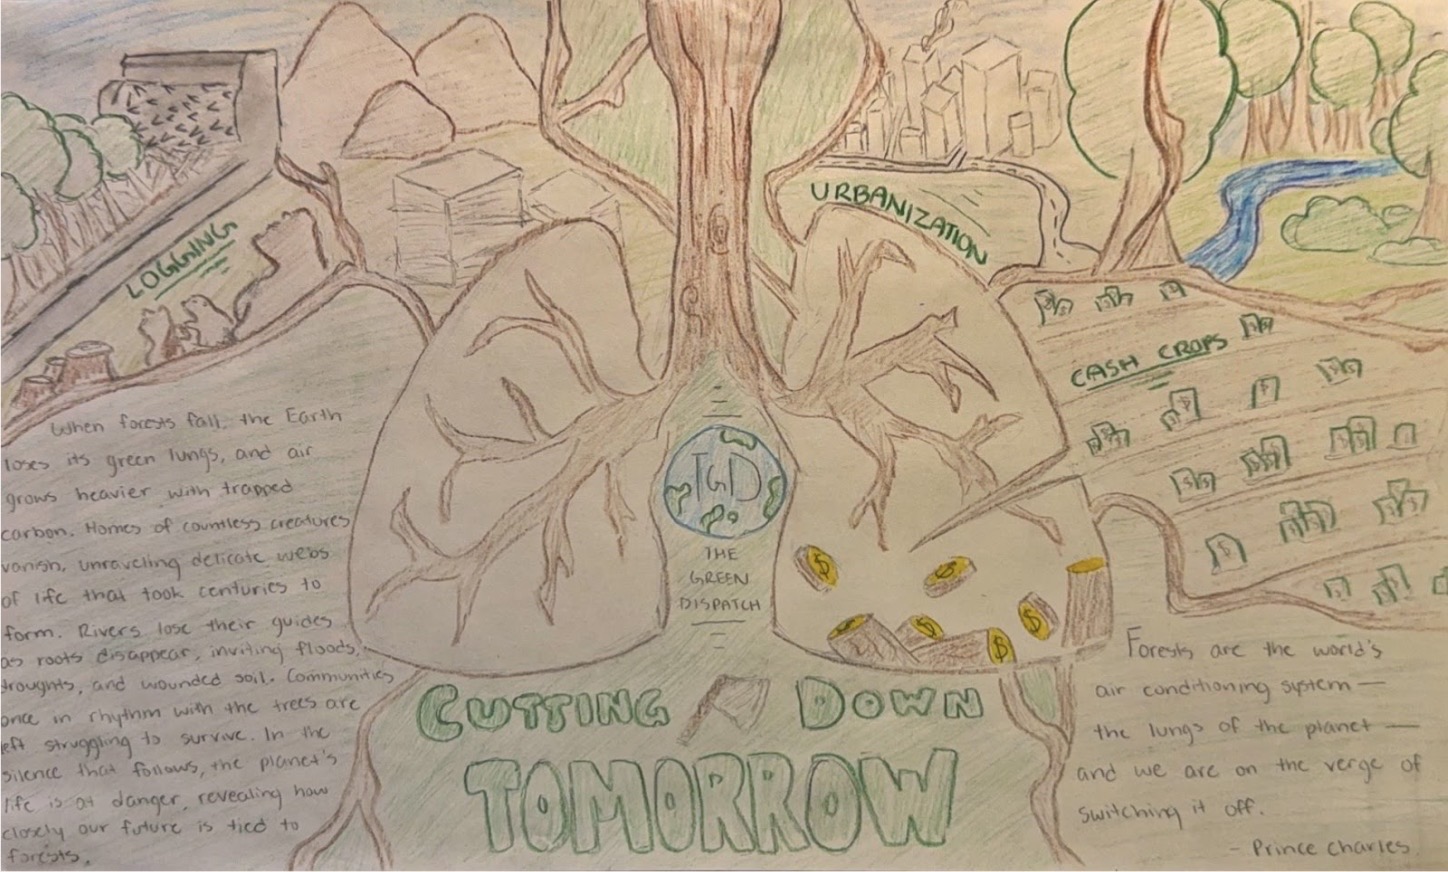 LOGGING
URBANIZATION
CASH CROPS
When forests fall, the Earth
loses its green lungs, and air
grows heavier with trapped
carbon. Homes of countless creatures
vanish, unraveling delicate webs
of life that took centuries to
form. Rivers lose their guides
as roots disappear, inviting floods,
droughts, and wounded soil. Communities
once in rhythm with the trees are
left struggling to survive. In the
silence that follows, the planet's
life is at danger, revealing how
closely our future is tied to
forests.
TGD
THE
GREEN
DISPATCH
$
$
$
$
$
CUTTING DOWN
TOMORROW
Forests are the world's
air conditioning system—
the lungs of the planet—
and we are on the verge of
switching it off.
- Prince Charles